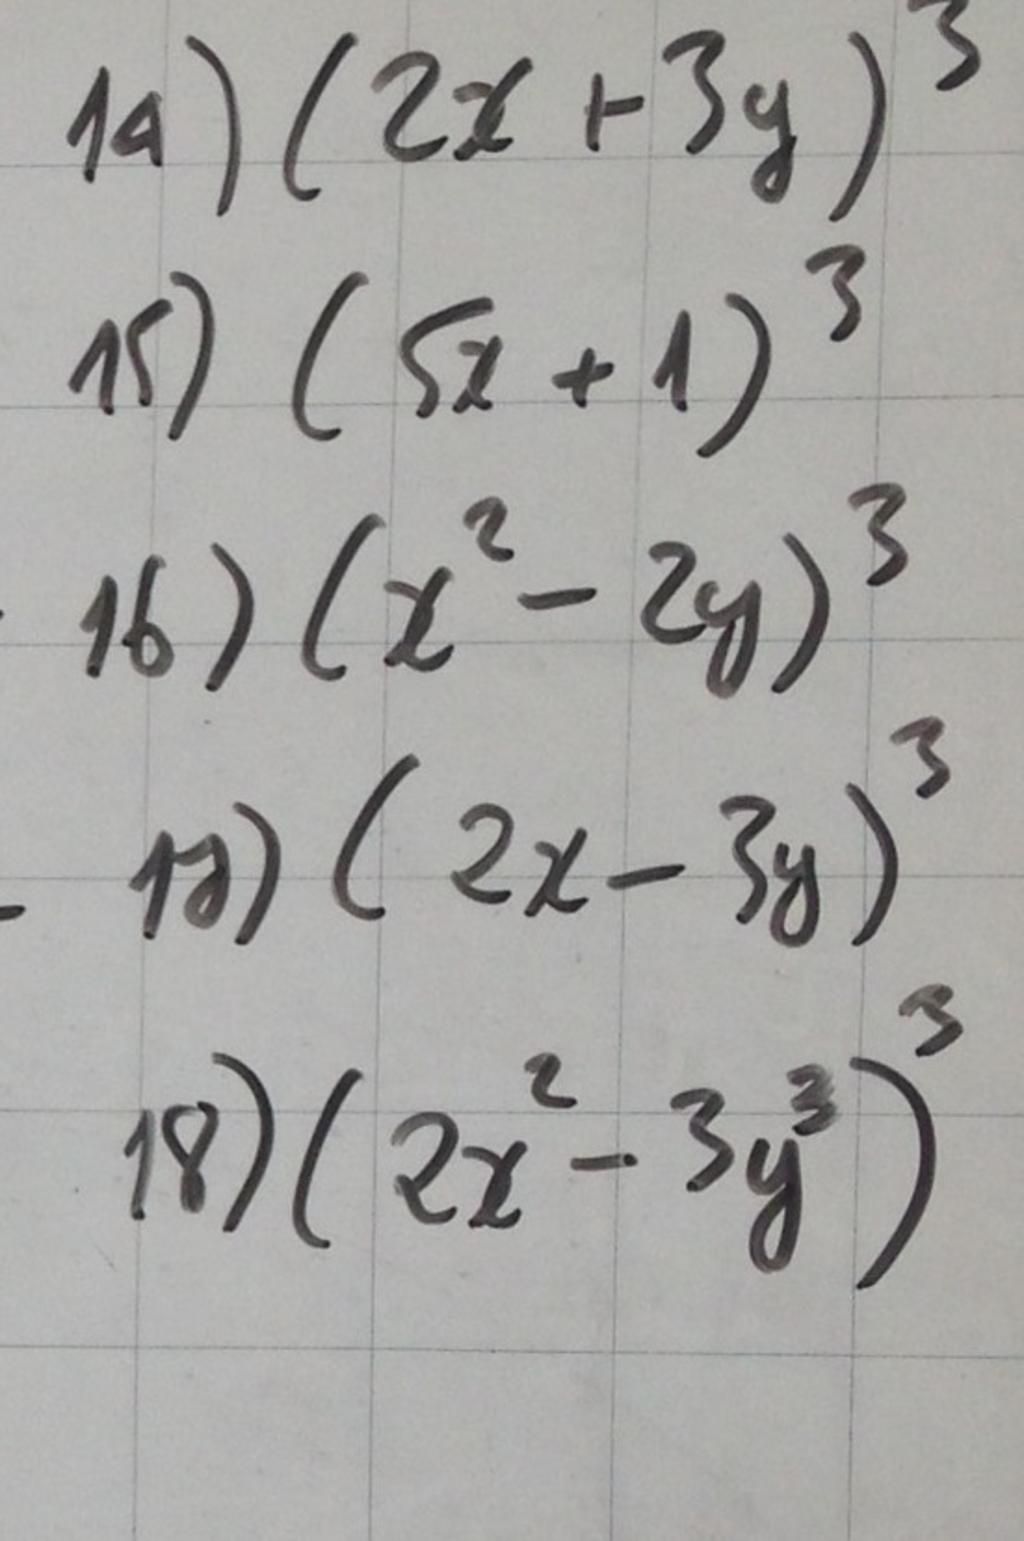 14) (2x + 3y)³
15) (5x + 1)³
16) (x² - 2y)³
17) (2x - 3y)³
18) (2x² - 3y³)³